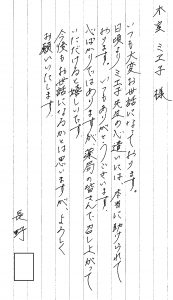 本変 ミエ子 様
いつも大変お世話になっております。
日頃より ミエ子先生の心遣いには、本当に助けられて
おります。いつもありがとうございます。
心ばかりではありますが、薬局の皆さんで召し上がって
いただけると嬉しいです。
今後もお世話になるかとは思いますが、よろしく
お願いいたします。
長野